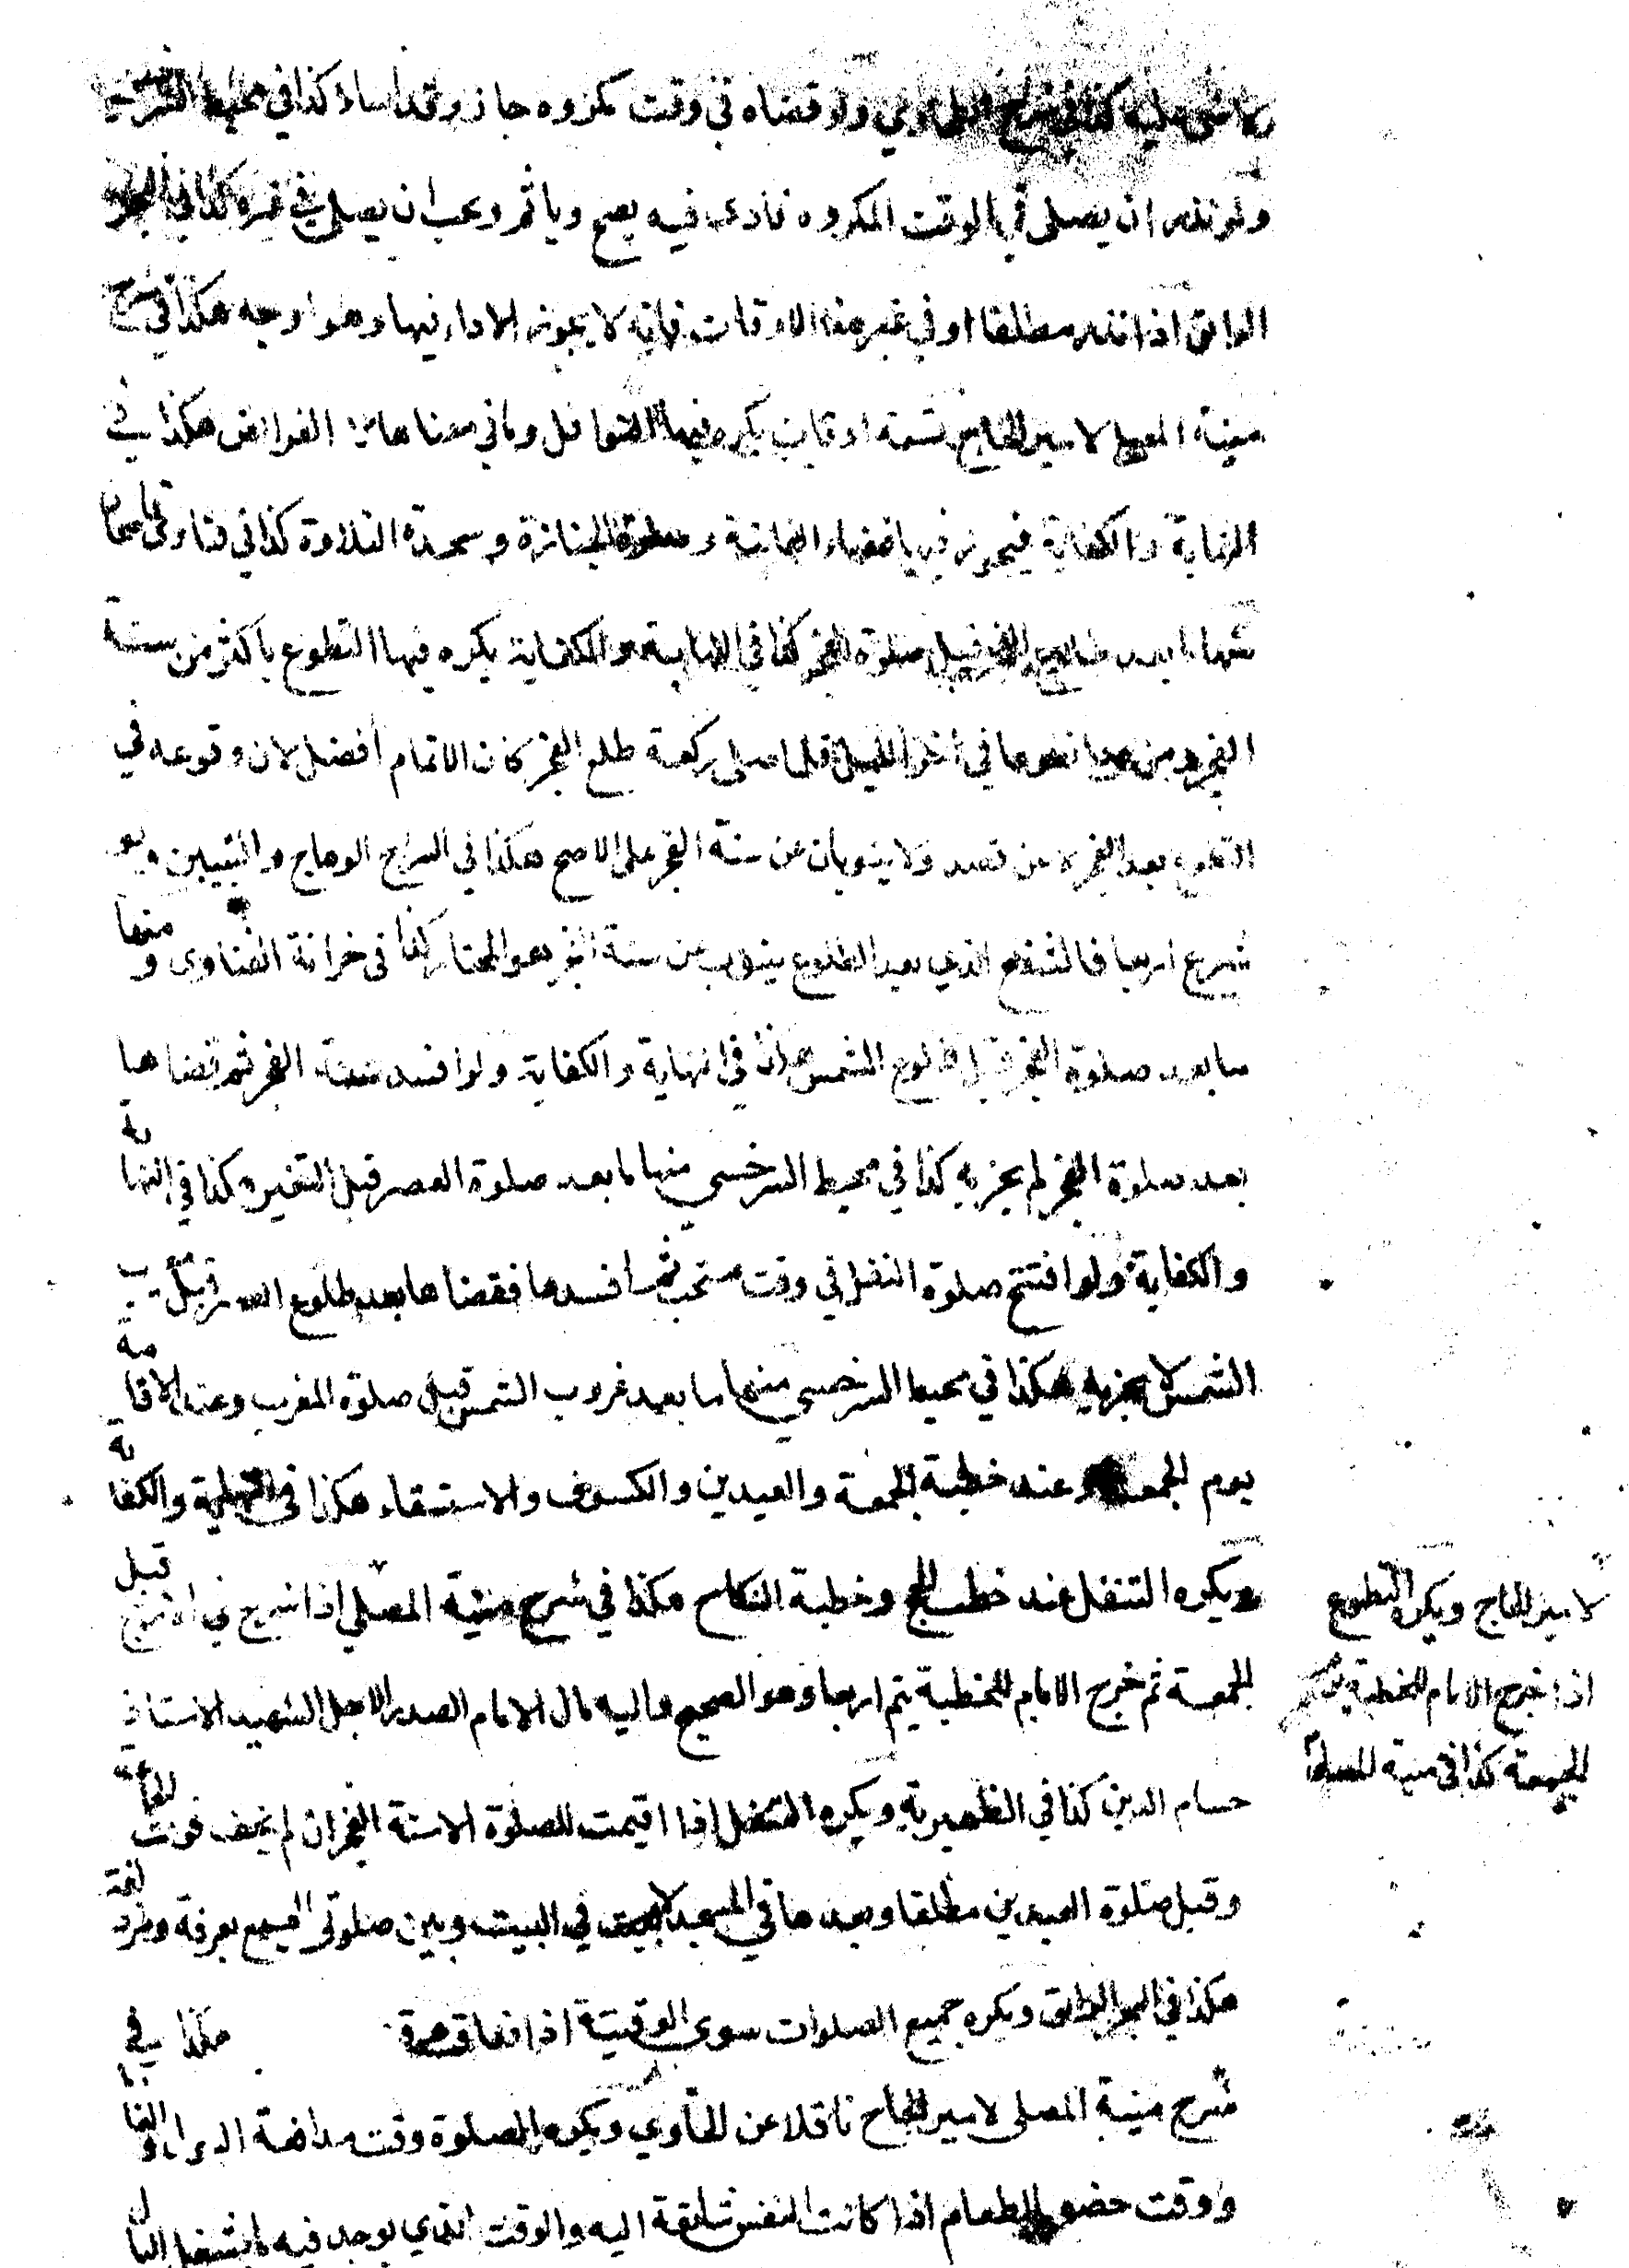 ولا شي عليه كذا في شرح الطحاوي ولو قضاه في وقت مكروه جاز وقد أساء كذا في محيط السرخسي
ولو نذر ان يصلي في الوقت المكروه فادى فيه يصح وياثم ويجب ان يصلي في غيره كذا في البحر
الرائق اذا نذر مطلقا او في غير هذه الاوقات فانه لا يجوز الاداء فيها وهو اوجه هكذا في شرح
منية المصلي لامير الحاج تسعة اوقات يكره فيها النوافل وما في معناها لا الفرائض هكذا في
النهاية والكفاية فيجوز فيها قضاء الفائتة وصلوة الجنازة وسجدة التلاوة كذا في فتاوى قاضيخان
منها ما بعد طلوع الفجر قبل صلوة الفجر كذا في النهاية والكفاية يكره فيها التطوع باكثر من سنة
الفجر ومن في اخر الليل فلما صلى ركعة طلع الفجر كان الاتمام أفضل لان وقوعه في
التطوع بعد الفجر لا عن قصد ولا ينوبان عن سنة الفجر على الاصح هكذا في السراج الوهاج والتبيين ولو
شرع اربعا فالشفع الذي بعد الطلوع ينوب عن سنة الفجر هو المختار كذا فى خزانة الفتاوى ومنها
ما بعد صلوة الفجر قبل طلوع الشمس هكذا في النهاية والكفاية ولو افسد سنة الفجر ثم قضاها
بعد صلوة الفجر لم يجزيه كذا في محيط السرخسي منها ما بعد صلوة العصر قبل التغير كذا في النهاية
والكفاية ولو افتتح صلوة النفل في وقت مستحب ثم افسدها فقضاها بعد قبل مغيب
الشمس لا يجزيه هكذا في محيط السرخسي منها ما بعد غروب الشمس قبل صلوة المغرب وعند الاقامة
يوم الجمعة وعند خطبة الجمعة والعيدين والكسوف والاستسقاء هكذا في النهاية والكفاية
ويكره التنفل عند خطب الحج وخطبة النكاح هكذا في شرح منية المصلي اذا شرع في الاربع قبل
لامير الحاج ويكره التطوع
اذا خرج الامام للخطبة يوم
الجمعة كذا في منية المصلي
الجمعة ثم خرج الامام للخطبة يتم اربعا وهو الصحيح واليه مال الامام الصدر الاجل الشهيد الاستاذ
حسام الدين كذا في الظهيرية ويكره التنفل اذا اقيمت الصلوة الا سنة الفجر ان لم يخف فوت الجماعة
وقبل صلوة العيدين مطلقا وبعدها في المسجد لا في البيت وبين صلوتي الجمع بعرفة ومزدلفة
هكذا في البحر الرائق ويكره جميع الصلوات سوى الوقتية اذا ضاق هكذا في
شرح منية المصلى لامير الحاج ناقلا عن الحاوي ويكره الصلوة وقت مدافعة البول او الغائط
ووقت حضور الطعام اذا كانت النفس تائقة اليه والوقت الذي يوجد فيه ما يشغل البال